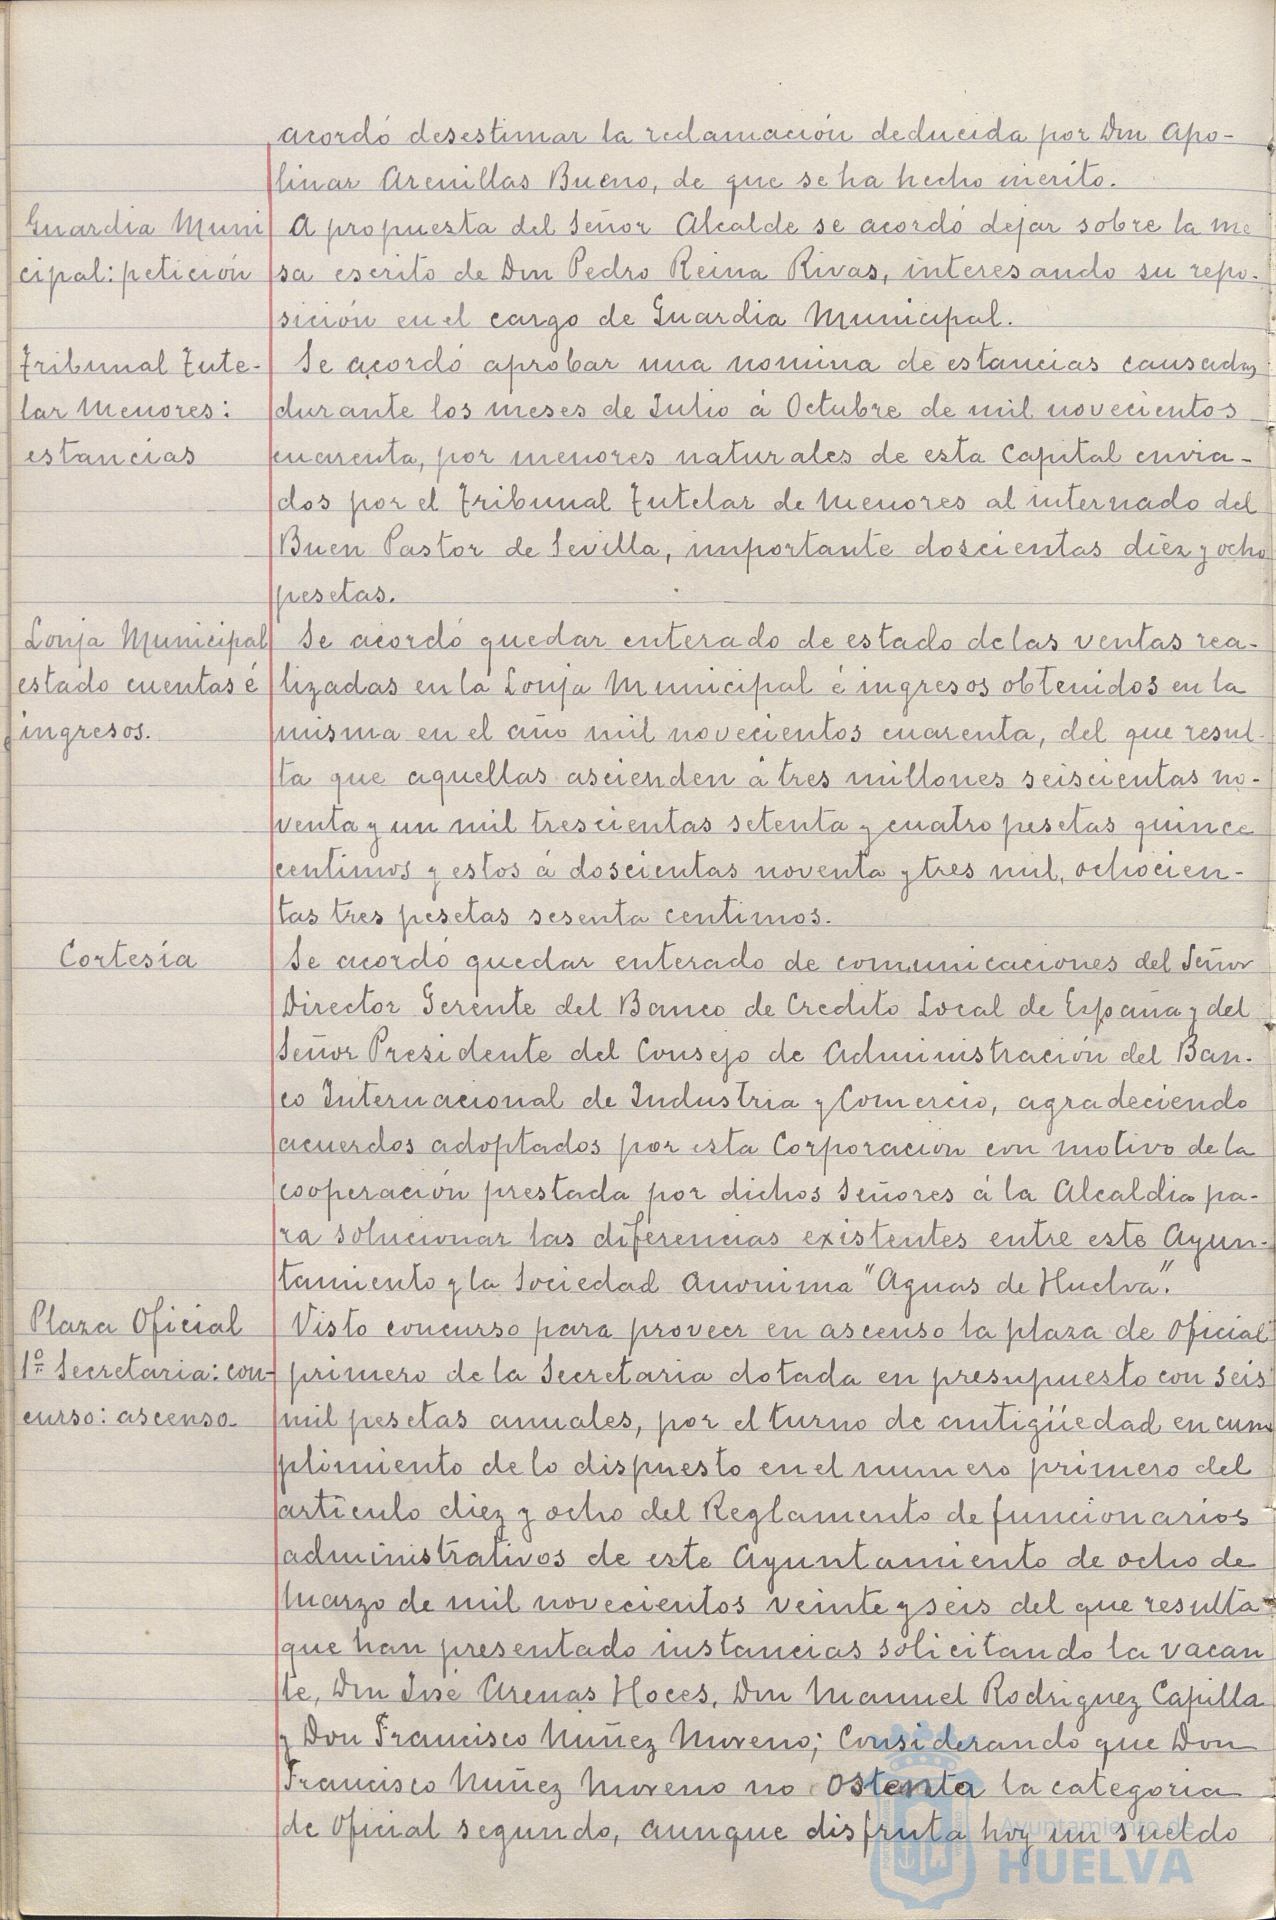 acordó desestimar la reclamación deducida por Don Apo-
linar Arenillas Bueno, de que se ha hecho mérito.
Guardia Muni
cipal: petición
A propuesta del Señor Alcalde se acordó dejar sobre la me
sa escrito de Don Pedro Reina Rivas, interesando su repo-
sición en el cargo de Guardia Municipal.
Tribunal Tute-
lar Menores:
estancias
Se acordó aprobar una nomina de estancias causadas
durante los meses de Julio á Octubre de mil novecientos
cuarenta, por menores naturales de esta Capital envia-
dos por el Tribunal Tutelar de Menores al internado del
Buen Pastor de Sevilla, importante doscientas diez y ocho
pesetas.
Lonja Municipal
estado cuentas é
ingresos.
Se acordó quedar enterado de estado de las ventas rea-
lizadas en la Lonja Municipal é ingresos obtenidos en la
misma en el año mil novecientos cuarenta, del que resul-
ta que aquellas ascienden á tres millones seiscientas no-
venta y un mil trescientas setenta y cuatro pesetas quince
centimos y estos á doscientas noventa y tres mil, ochocien-
tas tres pesetas sesenta centimos.
Cortesía
Se acordó quedar enterado de comunicaciones del Señor
Director Gerente del Banco de Credito Local de España y del
Señor Presidente del Consejo de Administración del Ban-
co Internacional de Industria y Comercio, agradeciendo
acuerdos adoptados por esta Corporación con motivo de la
cooperación prestada por dichos Señores á la Alcaldia pa-
ra solucionar las diferencias existentes entre este Ayun-
tamiento y la Sociedad Anonima "Aguas de Huelva".
Plaza Oficial
1º Secretaria: con-
curso: ascenso.
Visto concurso para proveer en ascenso la plaza de Oficial
primero de la Secretaria dotada en presupuesto con seis
mil pesetas anuales, por el turno de antigüedad en cum
plimiento de lo dispuesto en el numero primero del
articulo diez y ocho del Reglamento de funcionarios
administrativos de este Ayuntamiento de ocho de
Marzo de mil novecientos veinte y seis del que resulta
que han presentado instancias solicitando la vacan
te, Don José Arenas Hoces, Don Manuel Rodriguez Capilla
y Don Francisco Núñez Moreno; Considerando que Don
Francisco Núñez Moreno no ostenta la categoria
de Oficial segundo, aunque disfruta hoy un sueldo
Ayuntamiento de
HUELVA